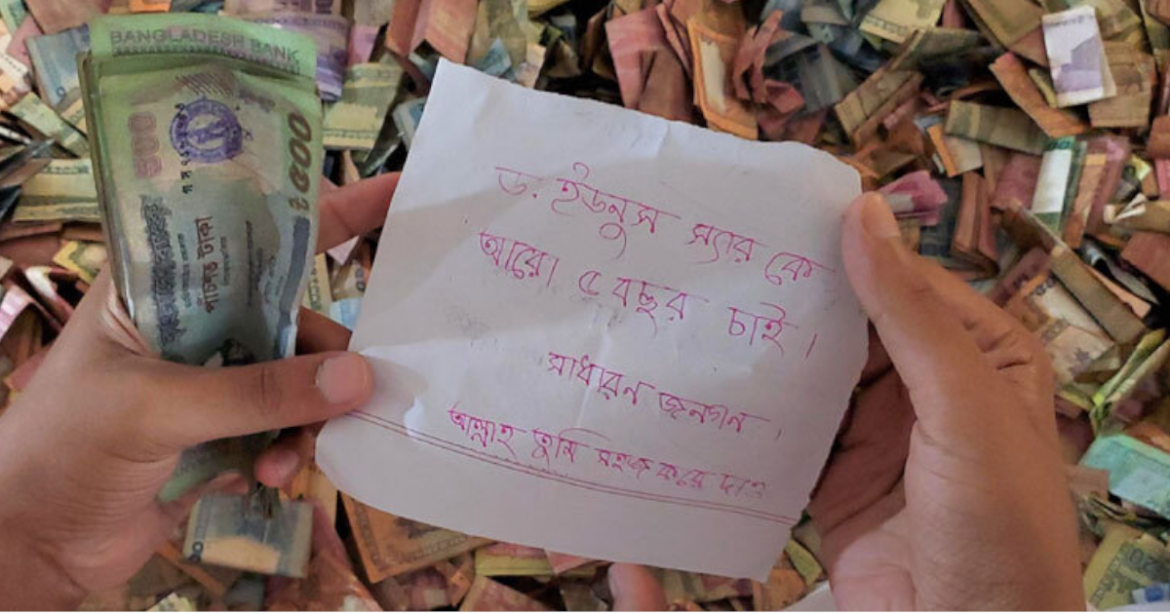 BANGLADESH BANK
500
৳500
পাঁচশত টাকা
ড. ইউনুস স্যার কে
আরো ৫ বছর চাই।
সাধারন জনগন।
আল্লাহ তুমি সহজ করে দাও